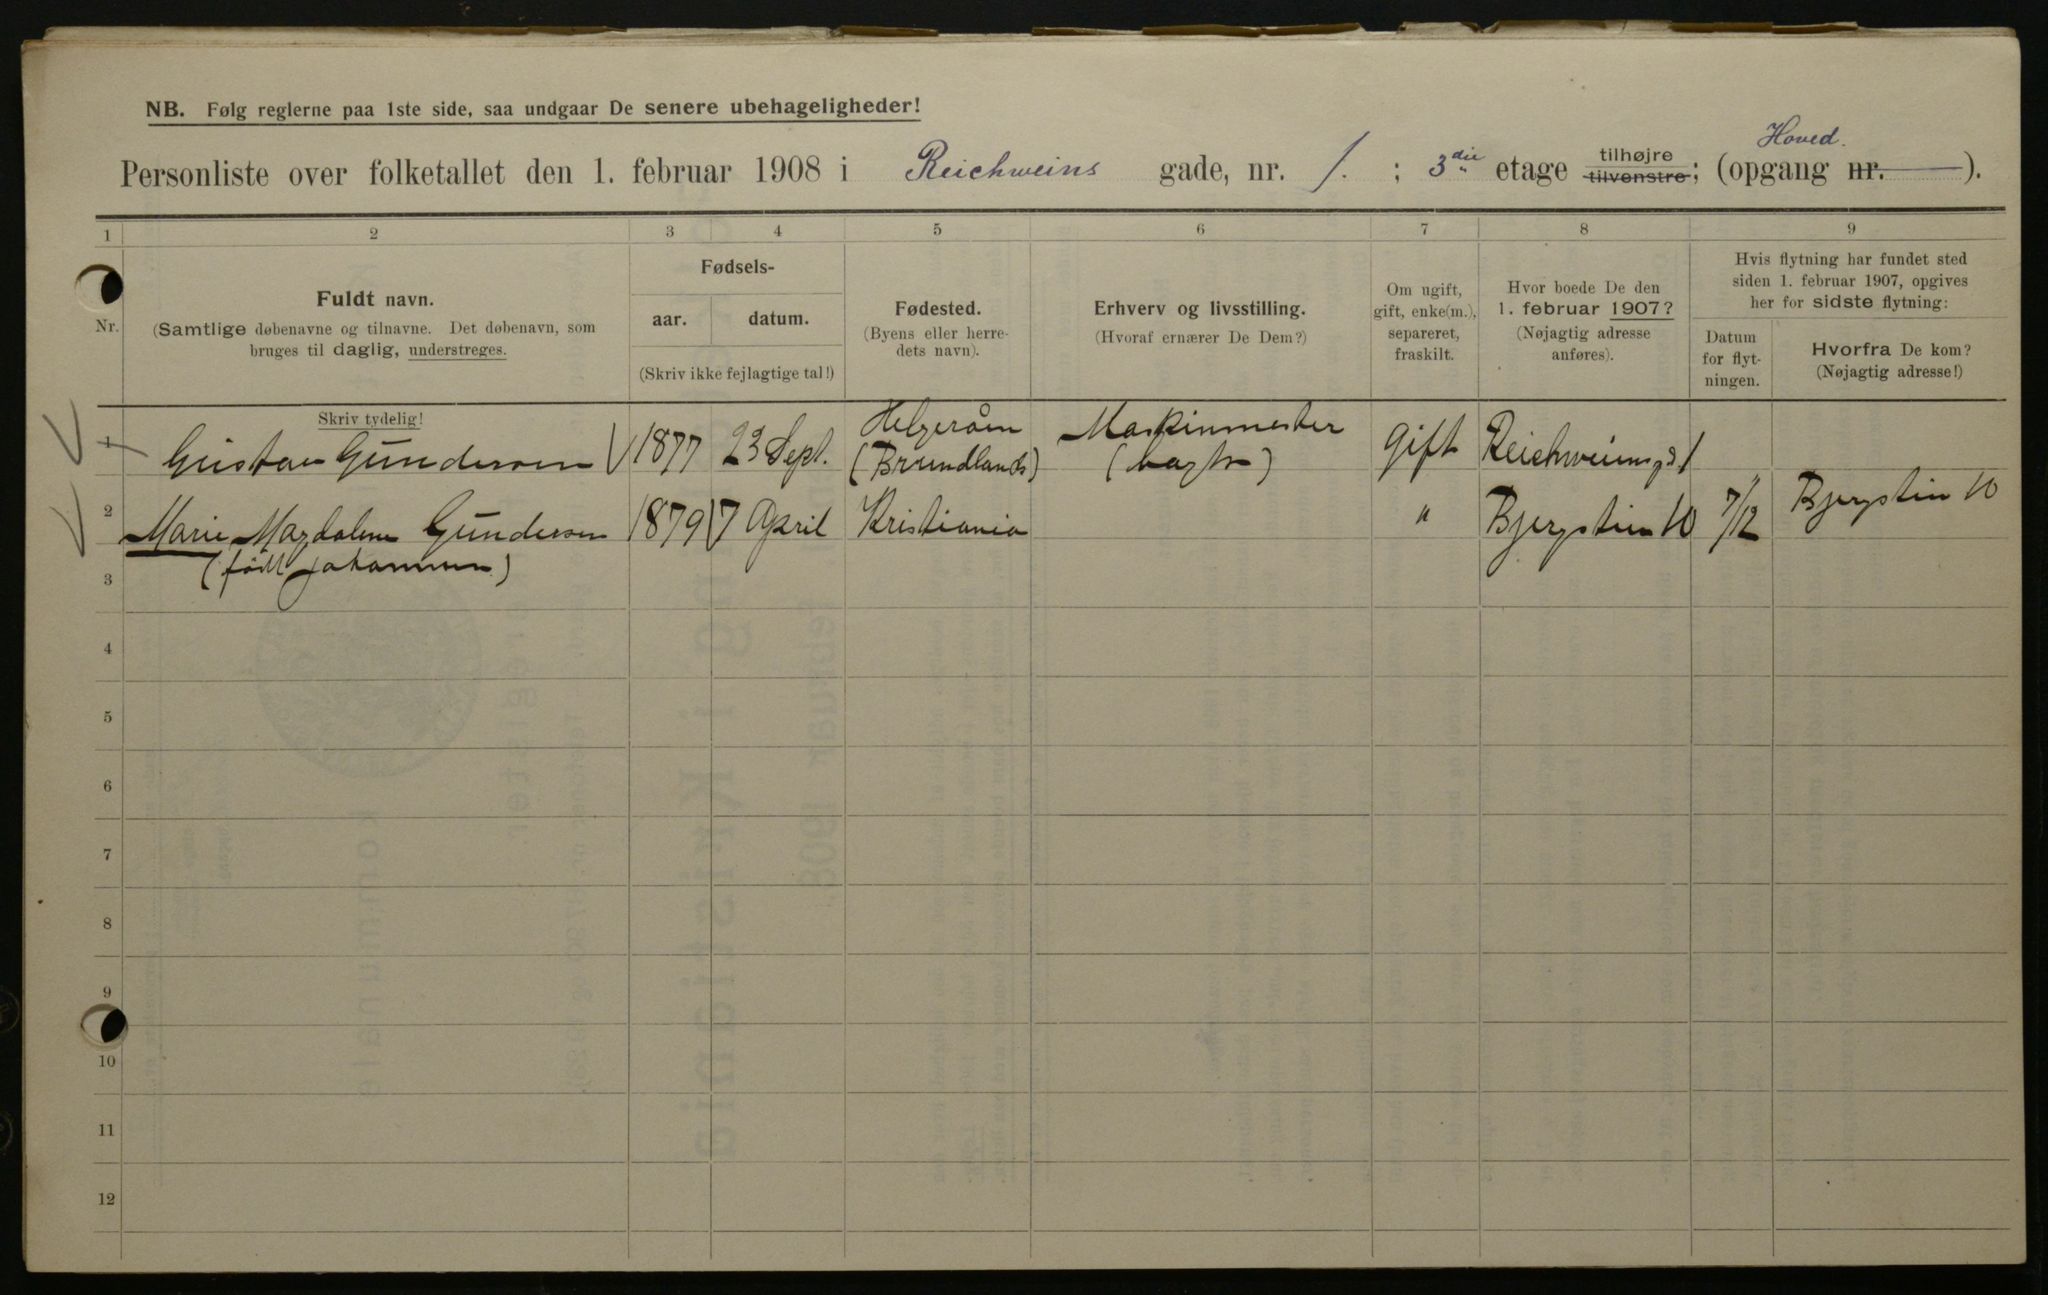 NB. Følg reglerne paa 1ste side, saa undgaar De senere ubehageligheder!
Hoved.
Personliste over folketallet den 1. februar 1908 i Reichweins gade, nr. 1. ; 3die etage tilhøjre tilvenstre; (opgang nr. ).
1 2 3 4 5 6 7 8 9
Nr.
Fuldt navn.
(Samtlige døbenavne og tilnavne. Det døbenavn, som
bruges til daglig, understreges.
Skriv tydelig!
Fødsels-
aar. datum.
(Skriv ikke fejlagtige tal!)
Fødested.
(Byens eller herre-
dets navn).
Erhverv og livsstilling.
(Hvoraf ernærer De Dem?)
Om ugift,
gift, enke(m.),
separeret,
fraskilt.
Hvor boede De den
1. februar 1907?
(Nøjagtig adresse
anføres).
Hvis flytning har fundet sted
siden 1. februar 1907, opgives
her for sidste flytning:
Datum
for flyt-
ningen.
Hvorfra De kom?
(Nøjagtig adresse!)
1 Gustav Gundersen 1877 23 Sept. Helgeråen (Brundlands) Maskinmester gift Reichweinsgd 1
2 Marie Magdalene Gundersen 1879 7 April Kristiania " Bjergstien 10 7/12 Bjergstien 10
(født Johannsen)
3
4
5
6
7
8
9
10
11
12